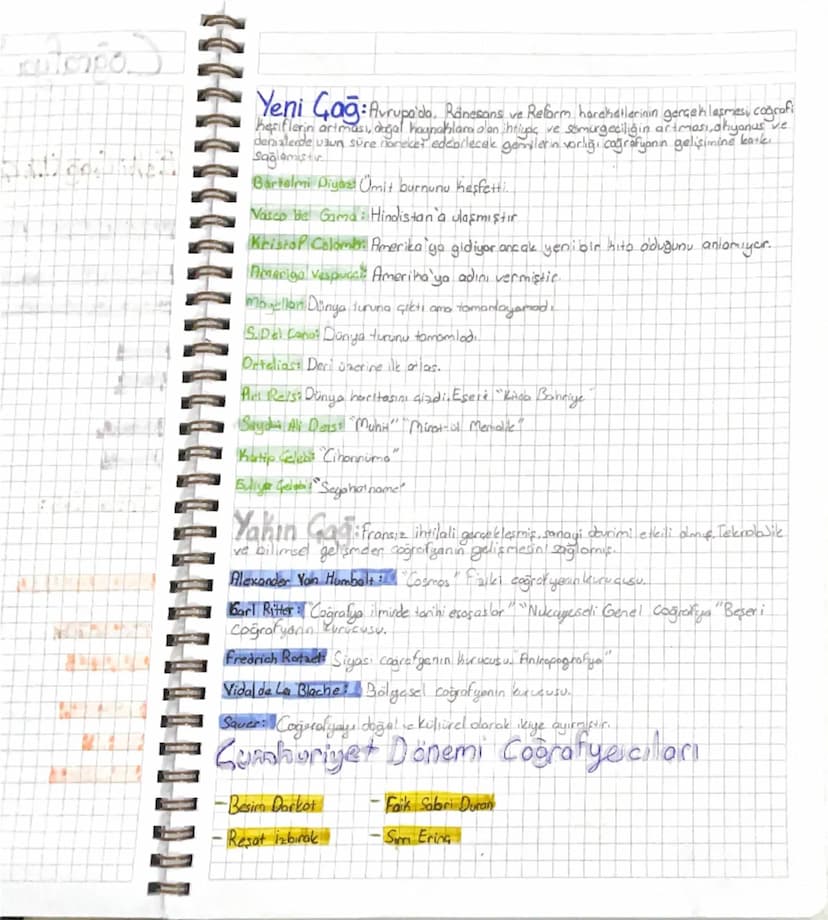 Coğrafya
Yeni Çağ: Avrupa'da, Rönesans ve Reform hareketlerinin gerçekleşmesi, coğrafi
keşiflerin artması, doğal kaynaklara olan ihtiyaç ve sömürgeciliğin artması, okyanus ve
denizlerde uzun süre hareket edebilecek gemilerin varlığı coğrafyanın gelişimine katkı
sağlamıştır.
Bartelmi Diyaz: Ümit burnunu keşfetti.
Vasco de Gama: Hindistan'a ulaşmıştır
Kristof Colomb: Amerika'ya gidiyor ancak yeni bir kıta olduğunu anlamıyor.
Amerigo Vespucci: Amerika'ya adını vermiştir
Magellan: Dünya turuna çıktı ama tamamlayamadı.
S. Del Cano: Dünya turunu tamamladı.
Ortelias: Deri üzerine ilk atlas.
Piri Reis: Dünya haritasını çizdi. Eseri "Kitabı Bahriye"
Seydi Ali Reis: "Muhit" "Mirat-ül Memalik"
Katip Çelebi: "Cihannüma"
Evliya Çelebi: "Seyahatname"
Yakın Çağ: Fransız ihtilali gerçekleşmiş, sanayi devrimi etkili olmuş. Teknolojik
ve bilimsel gelişmeler coğrafyanın gelişmesini sağlamış.
Alexander Van Humbolt: "Cosmos" Fiziki coğrafyanın kurucusu.
Carl Ritter: "Coğrafya ilminde tarihi esasaslar" "Mukayeseli Genel Coğrafya" Beşeri
coğrafyanın kurucusu.
Fredrich Ratzel: Siyasi coğrafyanın kurucusu. "Antropografya"
Vidal de La Blache: Bölgesel coğrafyanın kurucusu.
Sauer: Coğrafyayı doğal ve kültürel olarak ikiye ayırmıştır.
Cumhuriyet Dönemi Coğrafyacıları
- Besim Darkot - Faik Sabri Duran
- Reşat İzbırak - Sırrı Erinç